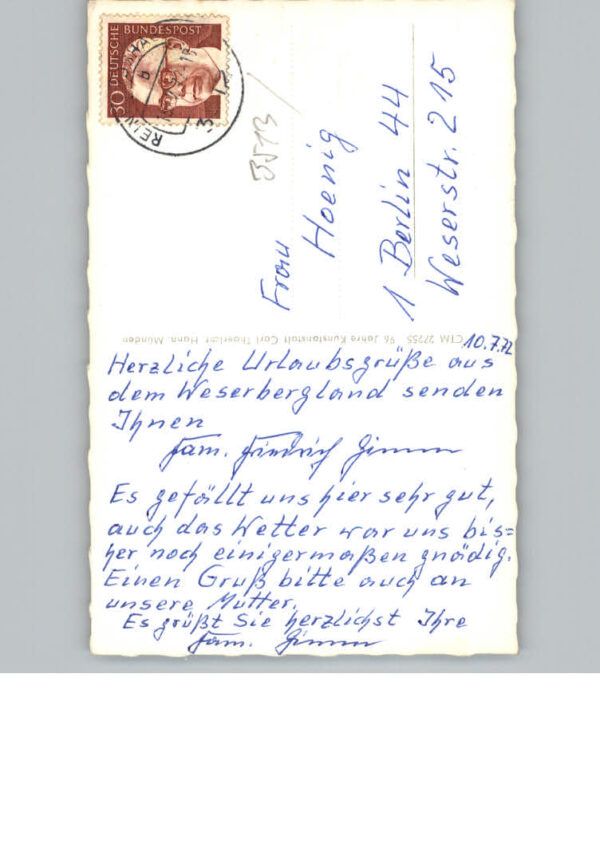 30 DEUTSCHE BUNDESPOST
3513
Frau
Hoenig
1 Berlin 44
Weserstr. 215
CTM 27255 96 Jahre Kunstanstalt Carl Thoericht Hann. Münden
10.7.72
Herzliche Urlaubsgrüße aus
dem Weserbergland senden
Ihnen
Fam. Friedrich
Es gefällt uns hier sehr gut,
auch das Wetter war uns bis=
her noch einigermaßen gnädig.
Einen Gruß bitte auch an
unsere Mutter.
Es grüßt Sie herzlichst Ihre
Fam.